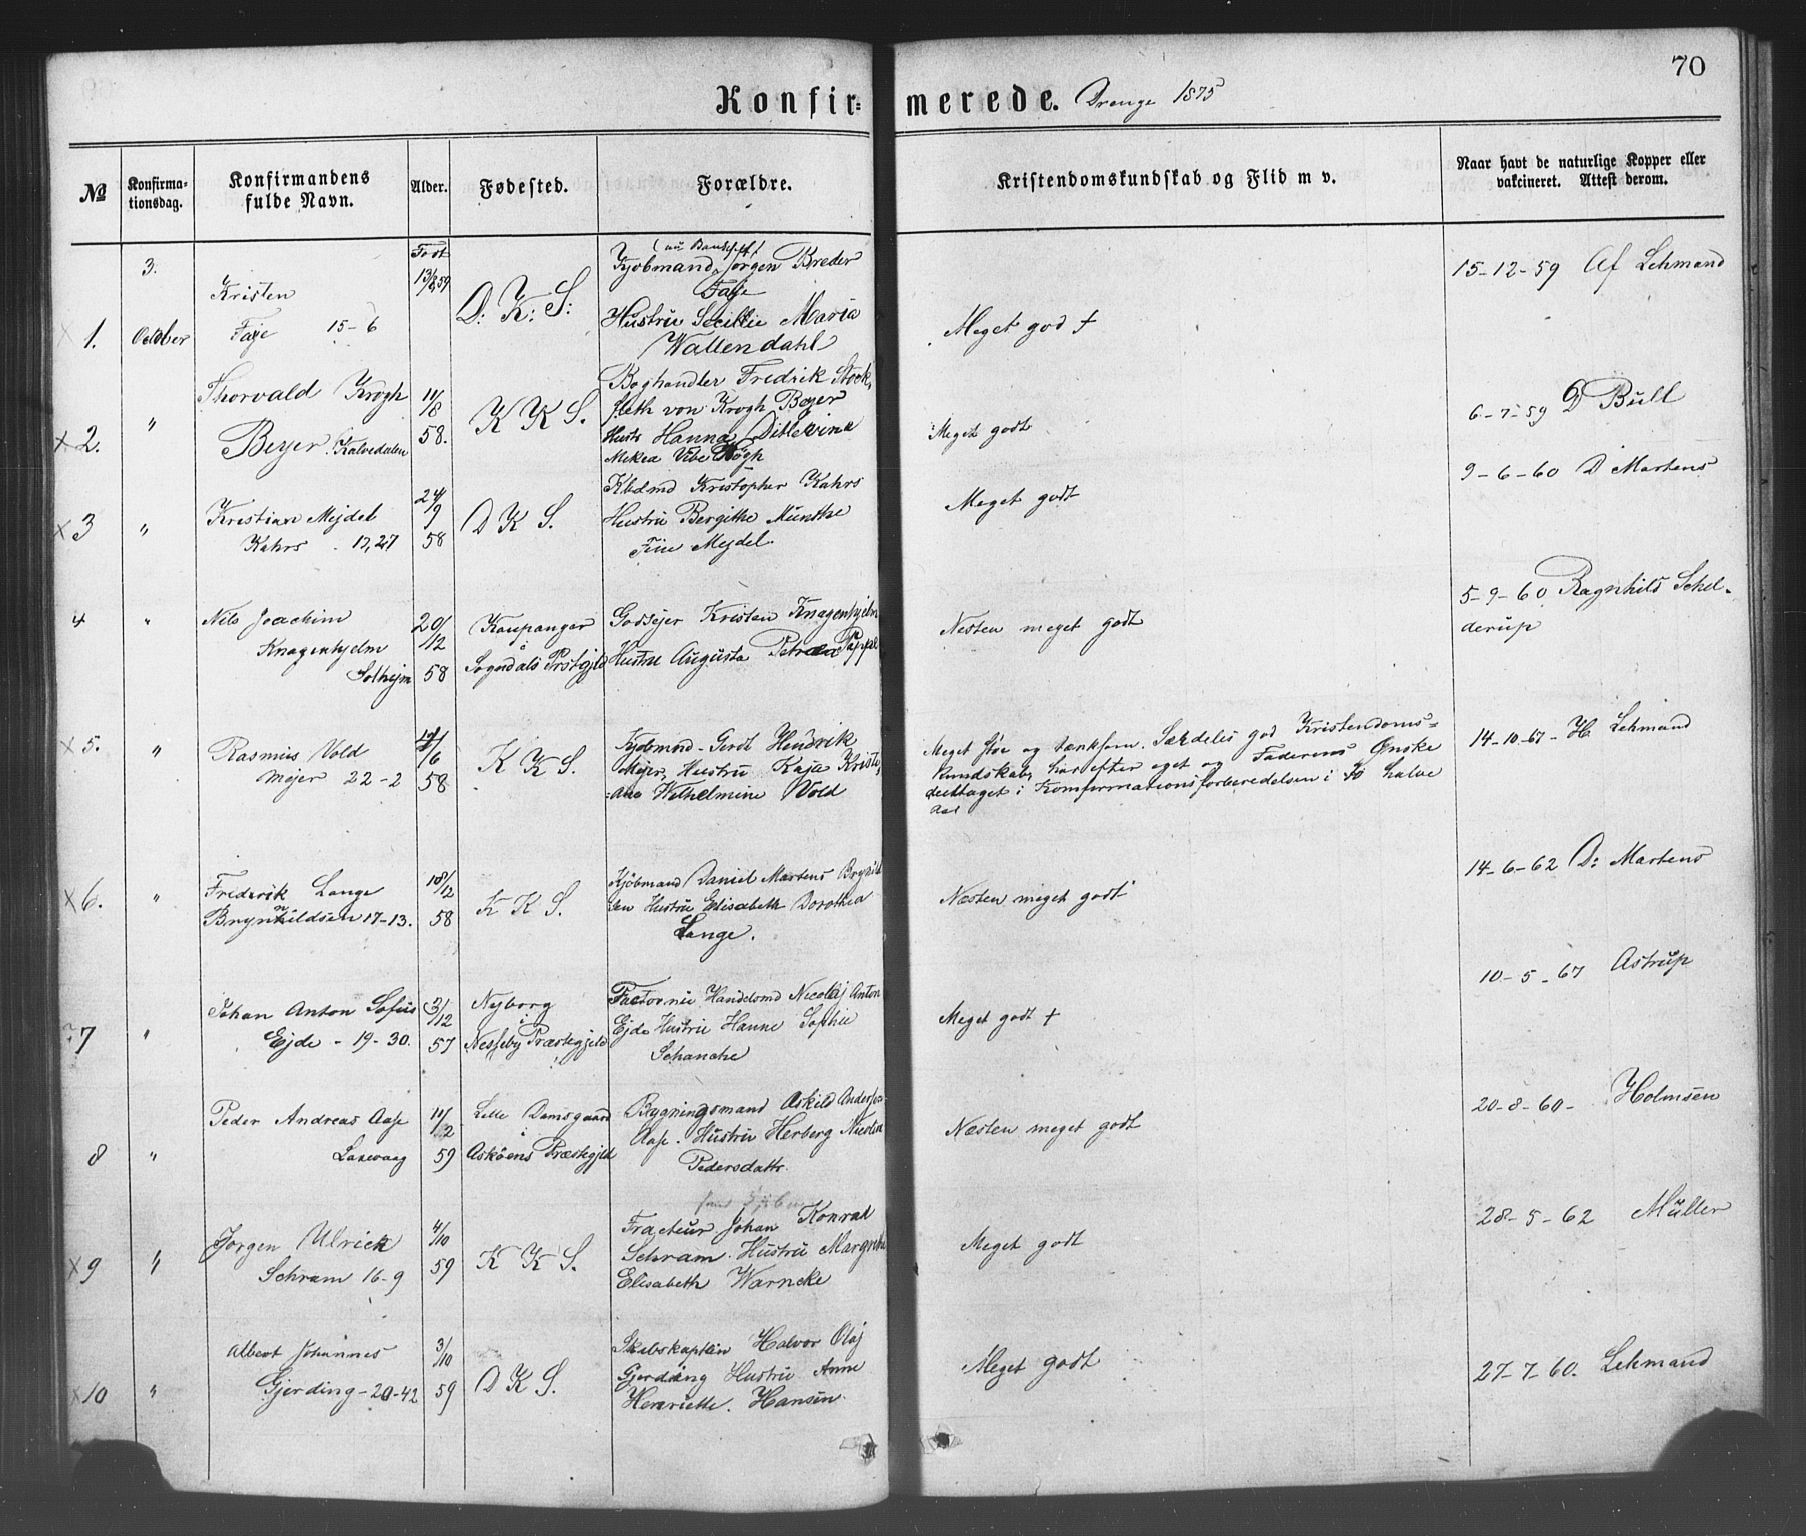 70
Konfirmerede. Drenge 1875
№
Konfirmationsdag.
Konfirmandens fulde Navn.
Alder.
Fødested.
Forældre.
Kristendomskundskab og Flid m v.
Naar havt de naturlige Kopper eller vakcineret. Attest derom.
1.
3. October
Kristen
Faye 15-6
Født
13/8 59
D: K: S:
Kjøbmand Jørgen Breder
Faye
Hustru Secillie Maria
Wallendahl
Meget god +
15-12-59 Af Lehmand
x 2.
"
Thorvald Krogh
Beyer Kalvedalen
11/8
58.
K K S.
Boghandler Fredrik Stock-
fleth von Krogh Beyer
Hust: Hanna Ditlevine
Mekea Vibe Krogh
Meget godt
6-7-59 D Bull
x 3
"
Kristian Mejdel
Kahrs 17,27
24/9
58
D K S.
Kbdmd Kristopher Kahrs
Hustru Bergithe Munthe
Fine Mejdel.
Meget godt
9-6-60 D Martens
4
"
Nils Joachim
Knagenhjelm
Solhejm
20/12
58
Kaupanger
Sogndals Prstgjld
Godsejer Kristen Knagenhjelm
Hustru Augusta Petrea Pappe
Nesten meget godt
5-9-60 Ragnhild Schel-
derup
x 5.
"
Rasmus Vold
Mejer 22-2
/6
58
K K S.
Kjøbmnd. Gerdt Hendrik
Mejer, Hustru Kaja Kristi-
ane Wilhelmine Vold
Meget sløv og tankeforn. Særdeles god Kristendoms-
kundskab, har efter eget og Faderens Ønske
deeltaget i Konfirmationsforberedelsen i halve
Aar
14-10-67- H Lehmand
x 6.
"
Frederik Lange
Brynhildsen 17-13.
18/12
58
K K S.
Kjöbmand Daniel Martens Brynild
sen Hustru Elisabeth Dorothea
Lange.
Næsten meget godt
14-6-62 D: Martens
7
"
Johan Anton Sofus
Ejde - 19-30.
3/12
57
Nyborg
i
Nesseby Præstegjeld
Factor nu Handelsmd Nicolaj Anton
Ejde Hustru Hanne Sophie
Schanche
Meget godt +
10-5-67 Astrup
8
"
Peder Andreas Aase
Laxevaag
11/2
59
Lille Damsgaard
i
Askøens Præstegjld
Bygningsmand Askild Anderson
Aase. Hustru Herberg Nicolea
Pedersdattr.
Næsten meget godt
20-8-60- Holmsen
x 9
"
Jørgen Ulrick
Schram 16-9
4/10
59
K K S.
Fracteur Johan Konrad
Schram. Hustru Margrethe
Elisabeth Warncke
Meget godt
28-5-62 Müller
x 10
"
Albert Johannes
Gjerding - 20-42
3/10
59
D K S.
Skibskaptein Halvor Olaj
Gjerding Hustru Anne
Henriette. Hansen.
Meget godt
27-7-60. Lehmand